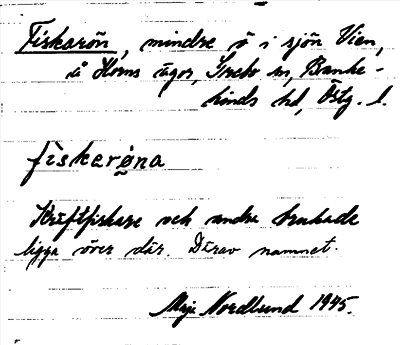 Fiskarön, mindre ö i sjön Vien,
å Horns ägor, Skeda sn, Banke-
kinds hd, Östg. l.
fiskarøna
Kräftfiskare och andra brukade
ligga över där. Därav namnet.
Maja Nordlund 1945.